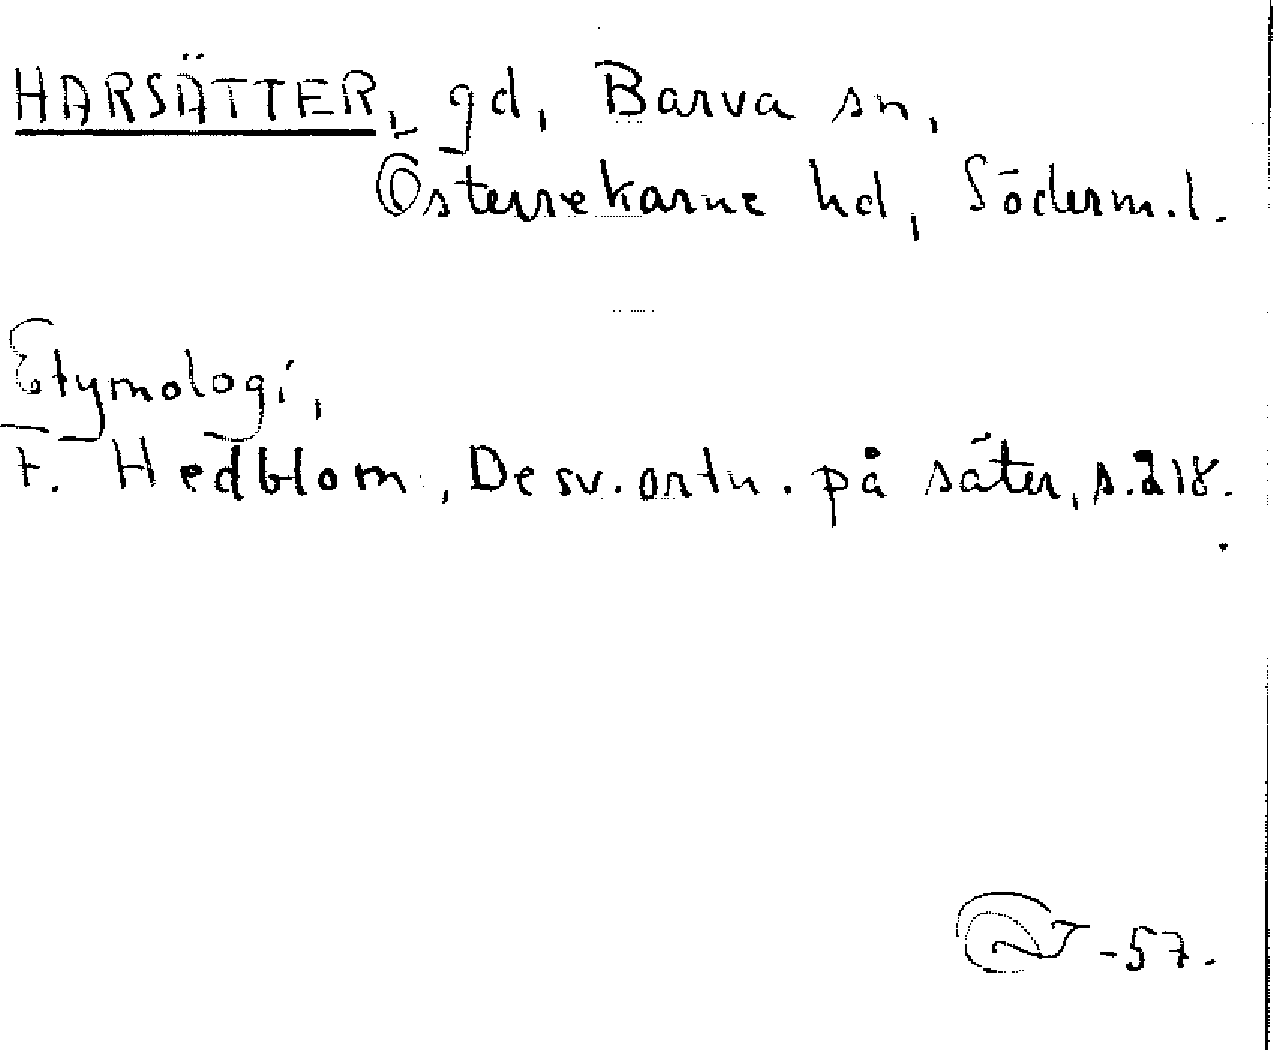 HARSÄTTER, gd, Barva sn,
Österrekarne hd, Söderm.l.
Etymologi,
F. Hedblom, De sv. ortn. på säter, s. 218.
-57.